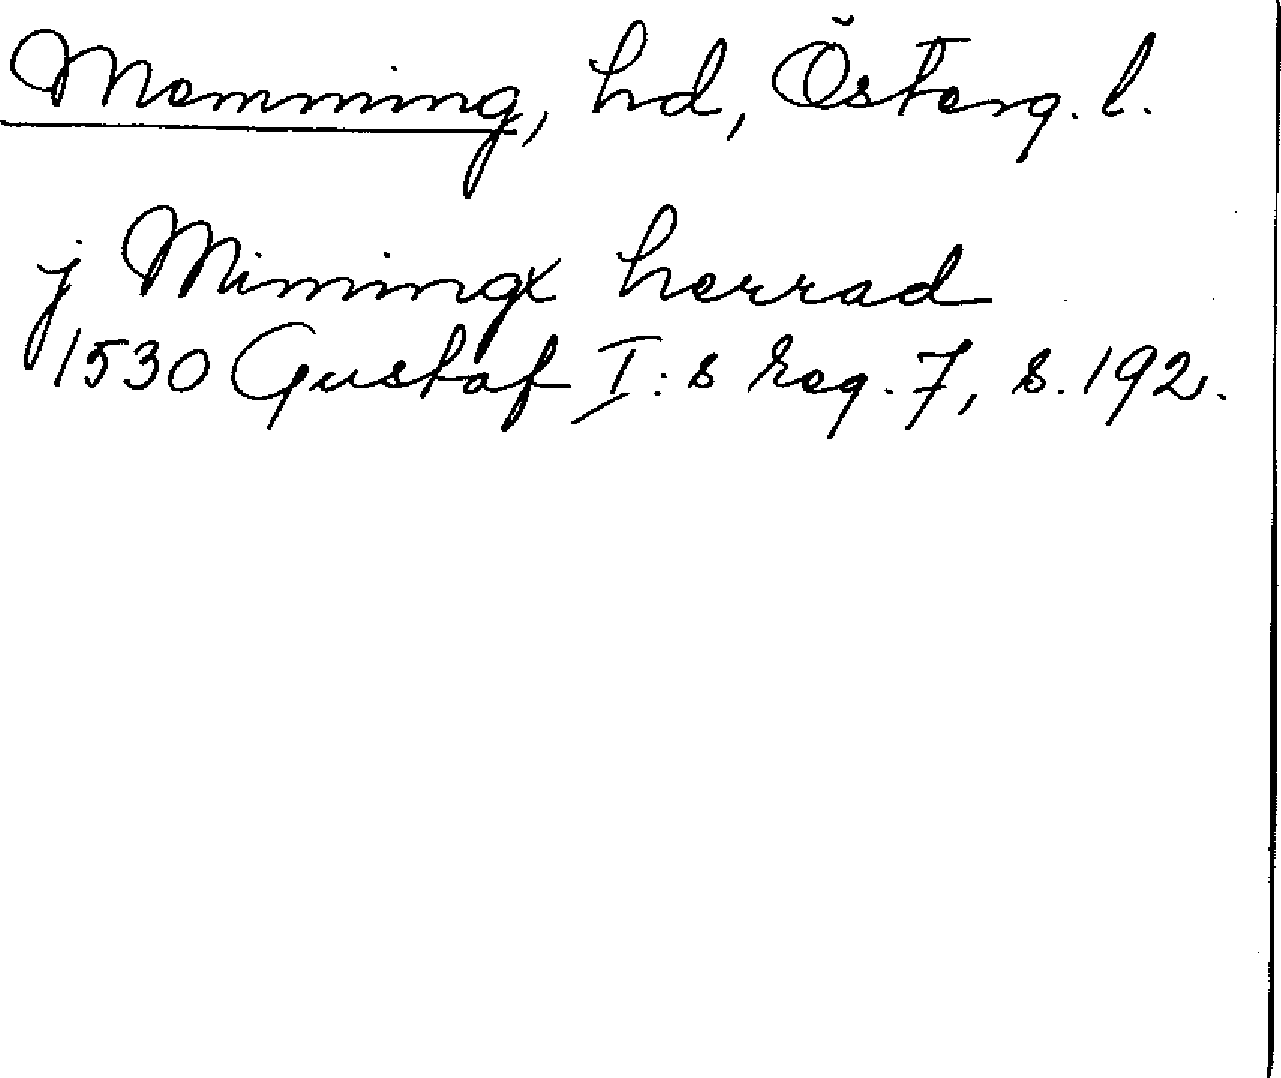 Memming, hd, Österg. l.
j Mimingx herrad
1530 Gustaf I:s reg. 7, s. 192.